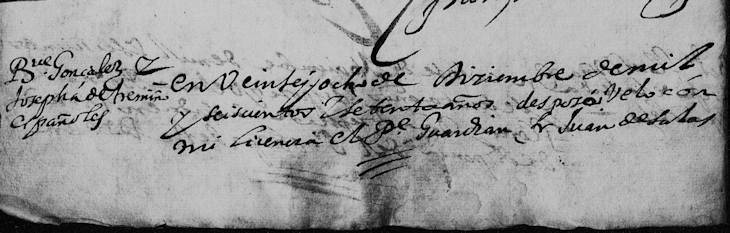 Bme Gonçalez Y
Josepha de tremiño
españoles
en Veinte y ocho de Diziembre de mil
y seiscientos y setenta años despozó y Velo con
mi licencia el Pe Guardian fr Juan de Salas